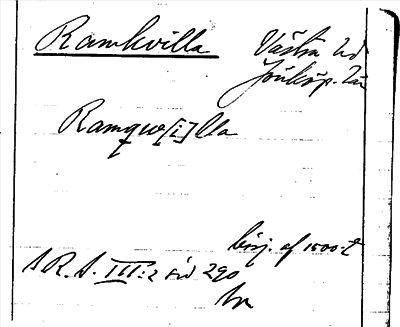 Ramkvilla Västra hd
Jönköp. län
Ramqw[i]lla
börj. af 1500-t
S.R.S. III:2 sid 290